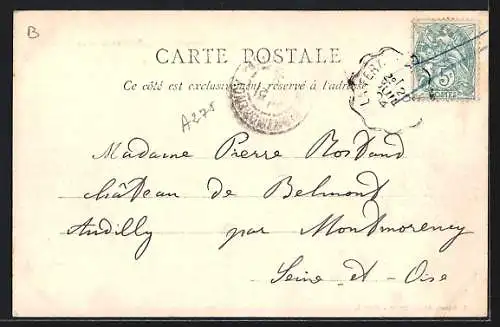 B
CARTE POSTALE
Ce côté est exclusivement réservé à l'adresse
A275
Madame Pierre Rostand
château de Belmont
Andilly par Montmorency
Seine et Oise
5c
POSTES